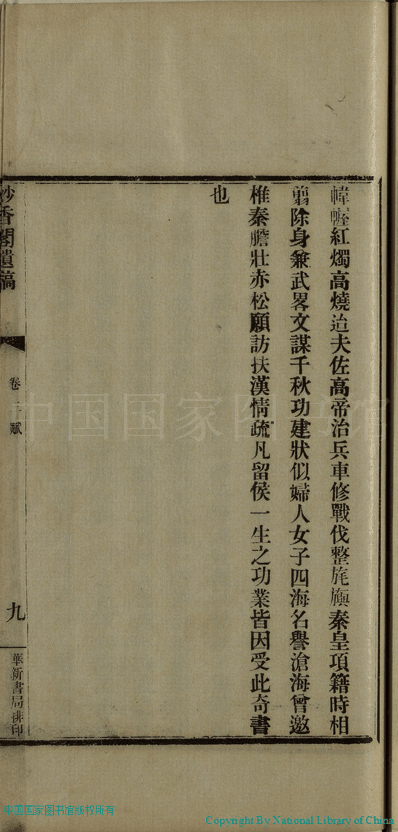 幃幄紅燭高燒迨夫佐高帝治兵車修戰伐整旄旟秦皇項籍時相
翦除身兼武畧文謀千秋功建狀似婦人女子四海名譽滄海曾邀
椎秦膽壯赤松願訪扶漢情疏凡留侯一生之功業皆因受此奇書
也
妙香閣遺稿
卷二 賦
九
華新書局排印
中国国家图书馆
中国国家图书馆版权所有
Copyright By National Library of China